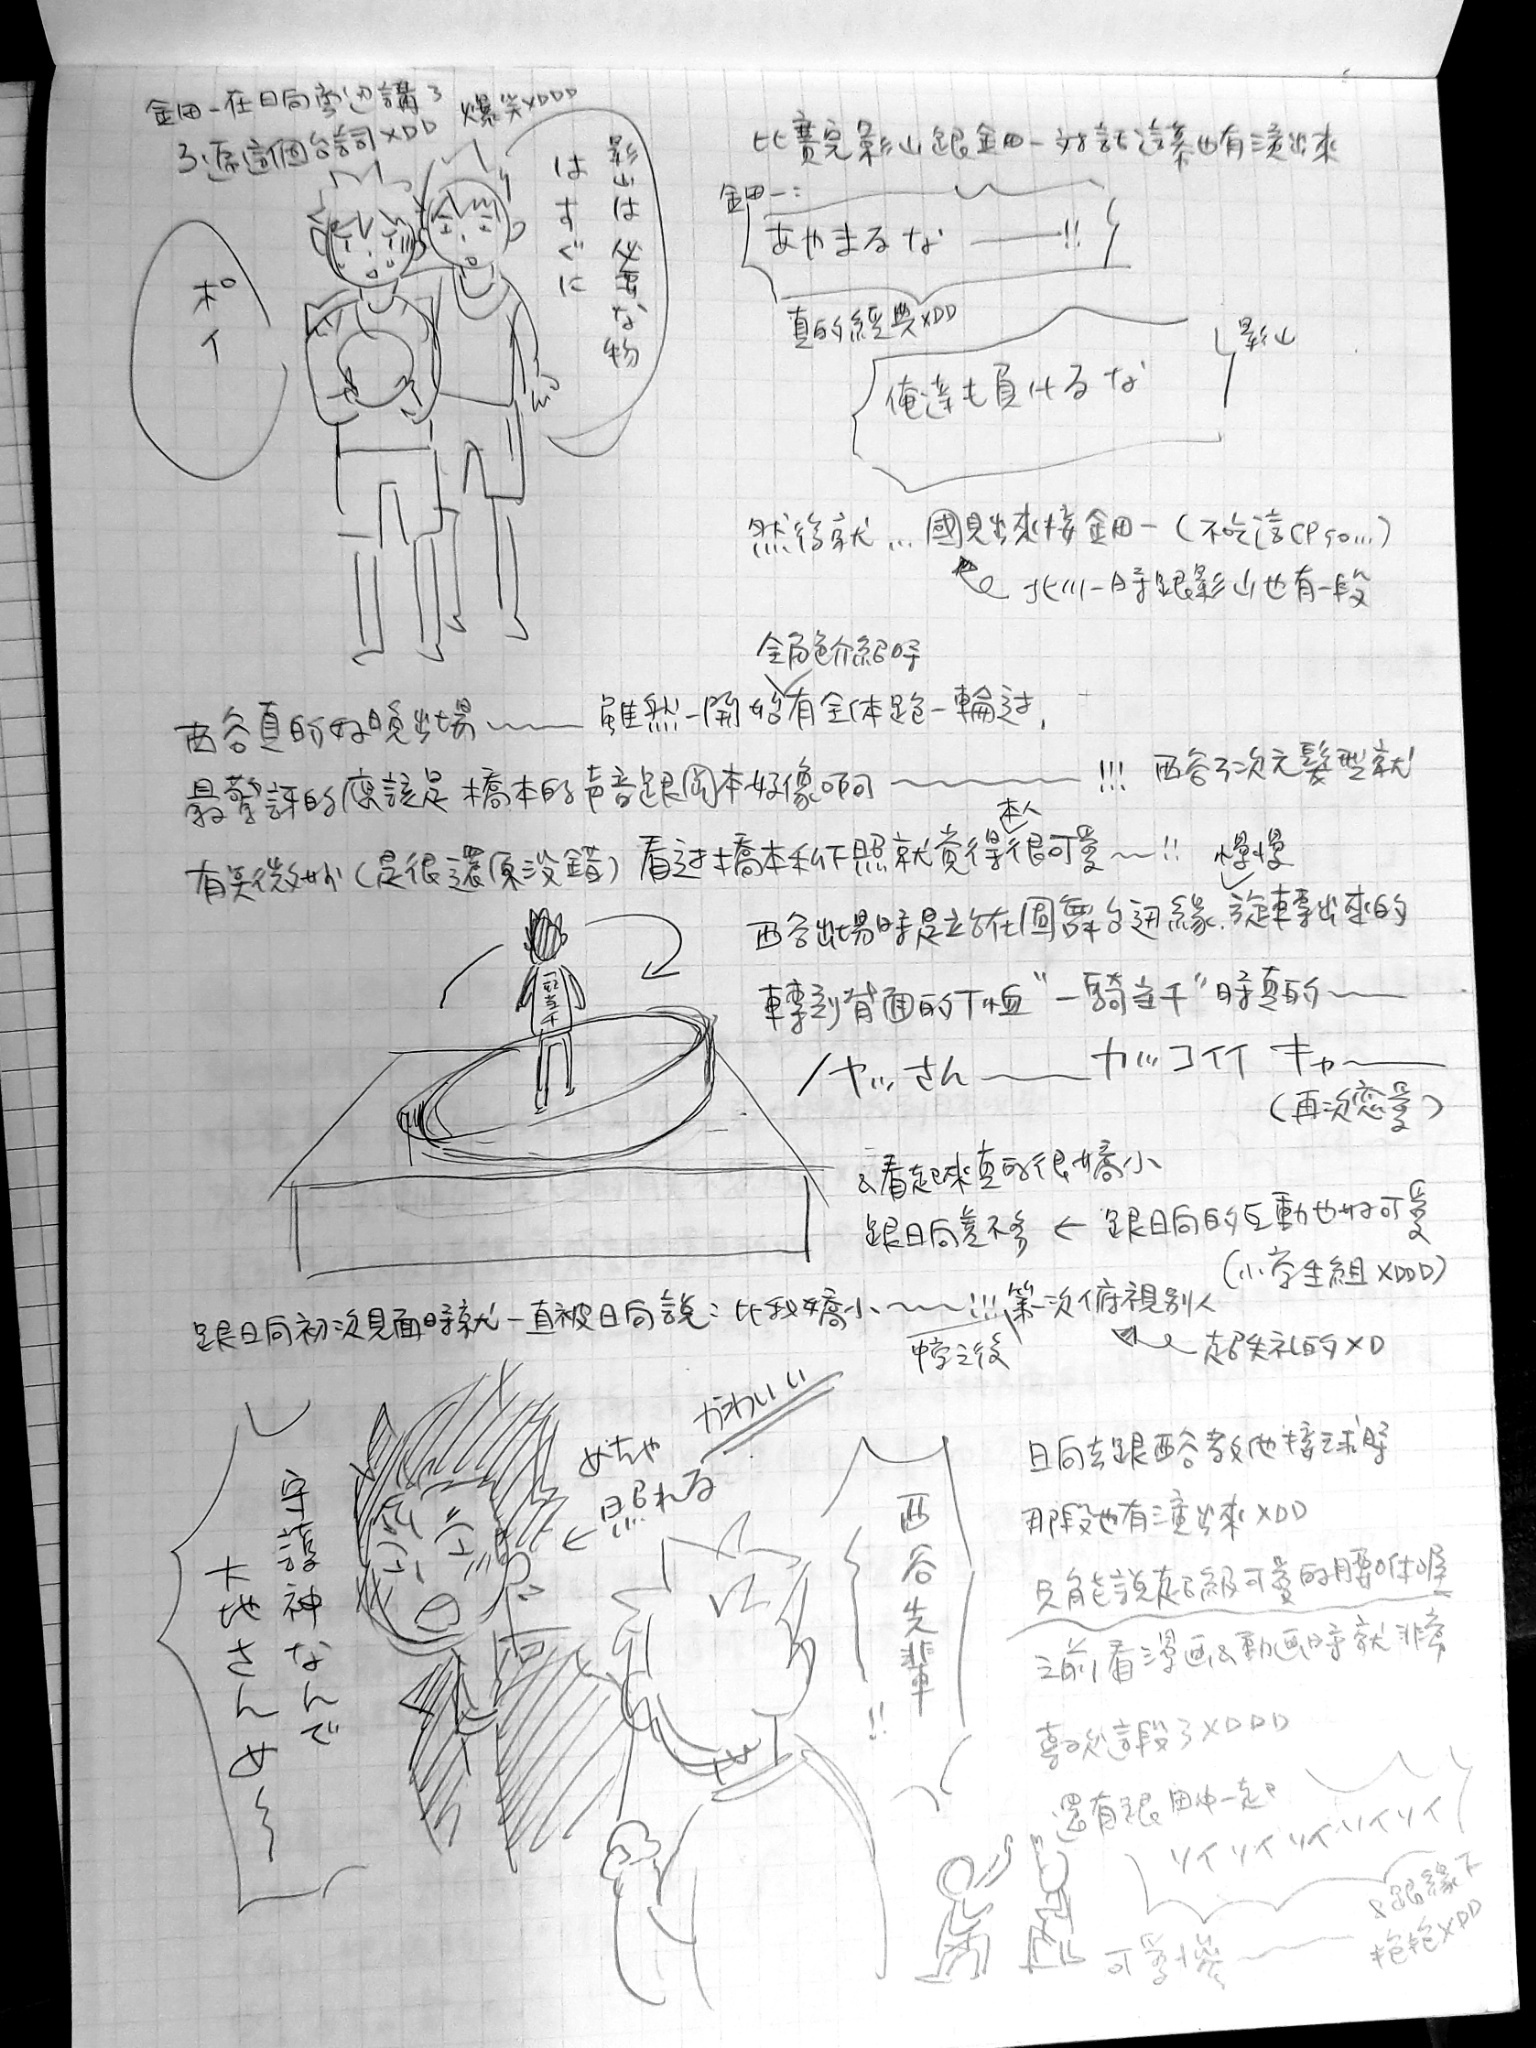 金田一在日向旁边講了
3遍這個台詞XDD 爆笑XDDD
影山は必要な物
はすぐに
ポイ
比賽完影山跟金田一対話這幕也有演出來
金田一：
あやまるな——!!
真的經典XDD
影山
俺達も負けるな
然後就... 國見出來接金田一（不吃這CP so...）
北川一時跟影山也有一段
全角色介紹時
西谷真的好晚出場～～ 雖然一開始有全体跑一輪过,
最驚訝的應該是橋本的声音跟岡本好像啊～～!!! 西谷3次元髮型就
有美微妙（是很還原沒錯）看过橋本私下照就覚得本人很可愛～!!
慢慢
西谷出場時是站在圓舞台边緣旋轉出來的
轉到背面的T恤"一騎当千"時真的～～
一騎当千
ノヤッさん～～カッコイイ キャ～～
（再次恋愛）
&看起來真的很嬌小
跟日向差不多 ← 跟日向的互動也好可愛
（小学生組XDDD）
跟日向初次見面時就一直被日向說：比我嬌小～～!!! 第一次俯視別人
中学之後
超失礼的XD
かわいい
めちゃ
照れる
守護神なんで
大地さんめ～
西谷先輩
!!
日向去跟西谷教他接球時
那段也有演出來XDD
只能說超級可愛的腰咻喔
之前看漫画&動画時就非常
喜歡這段了XDDD
還有跟田中一起
ソイソイソイソイソイ
&跟緣下
抱抱XDD
可愛